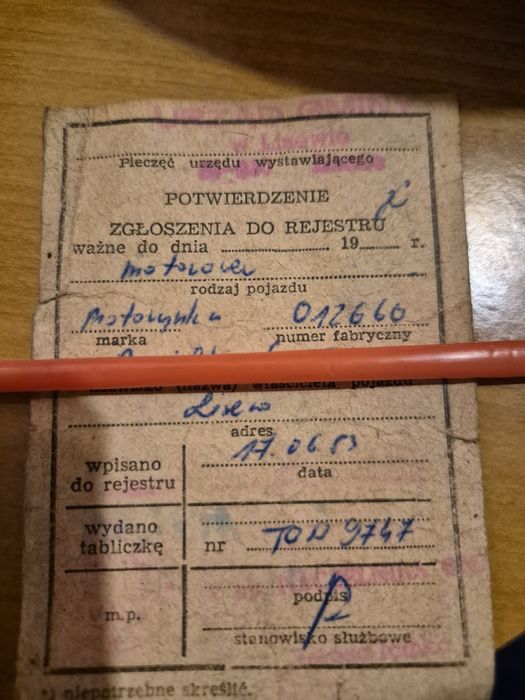 URZĄD GMINY
Pieczęć urzędu wystawiającego
POTWIERDZENIE
ZGŁOSZENIA DO REJESTRU
ważne do dnia 19 r.
motorower
rodzaj pojazdu
Motorynka 012660
marka numer fabryczny
(nazwa) właściciela pojazdu
Lisewo
adres
17.06.83
wpisano do rejestru
data
wydano tabliczkę
nr TON 9747
podpis
m.p.
stanowisko służbowe
*) niepotrzebne skreślić.